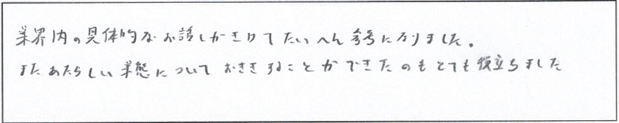 業界内の具体的なお話しがきけてたいへん参考になりました。
またあたらしい業態についておききすることができたのもとても役立ちました